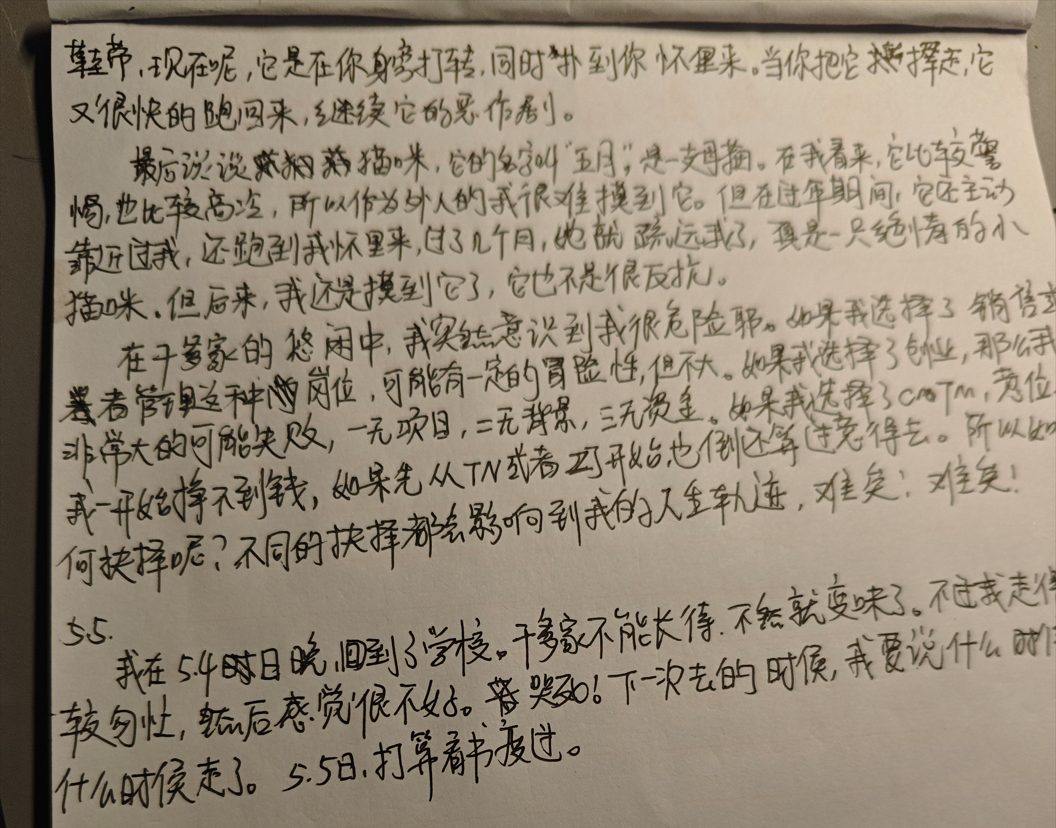 鞋带，现在呢，它是在你身旁打转，同时扑到你怀里来。当你把它择走，它
又很快的跑回来，继续它的恶作剧。
最后说说猫咪，它的名字叫“五月”，是一支母猫。在我看来，它比较警
惕，也比较高冷，所以作为外人的我很难摸到它。但在过年期间，它还主动
靠近过我，还跑到我怀里来，过了几个月，她就疏远我了，真是一只绝情的小
猫咪。但后来，我还是摸到它了，它也不是很反抗。
在干爹家的悠闲中，我突然意识到我很危险耶。如果我选择了销售或
者管理这种岗位，可能有一定的冒险性，但不大。如果我选择了创业，那么我
非常大的可能失败，一无项目，二无背景，三无资金。如果我选择了，岗位
我一开始挣不到钱，如果先从TN或者开始，也倒还算过意得去。所以如
何抉择呢？不同的抉择都会影响到我的人生轨迹，难矣！难矣！
5.5.
我在5.4日晚回到了学校。干爹家不能长待，不然就变味了。不过我走得
较匆忙，然后感觉很不好。哭！下一次去的时候，我要说什么时候
什么时候走了。5.5日，打算看书度过。